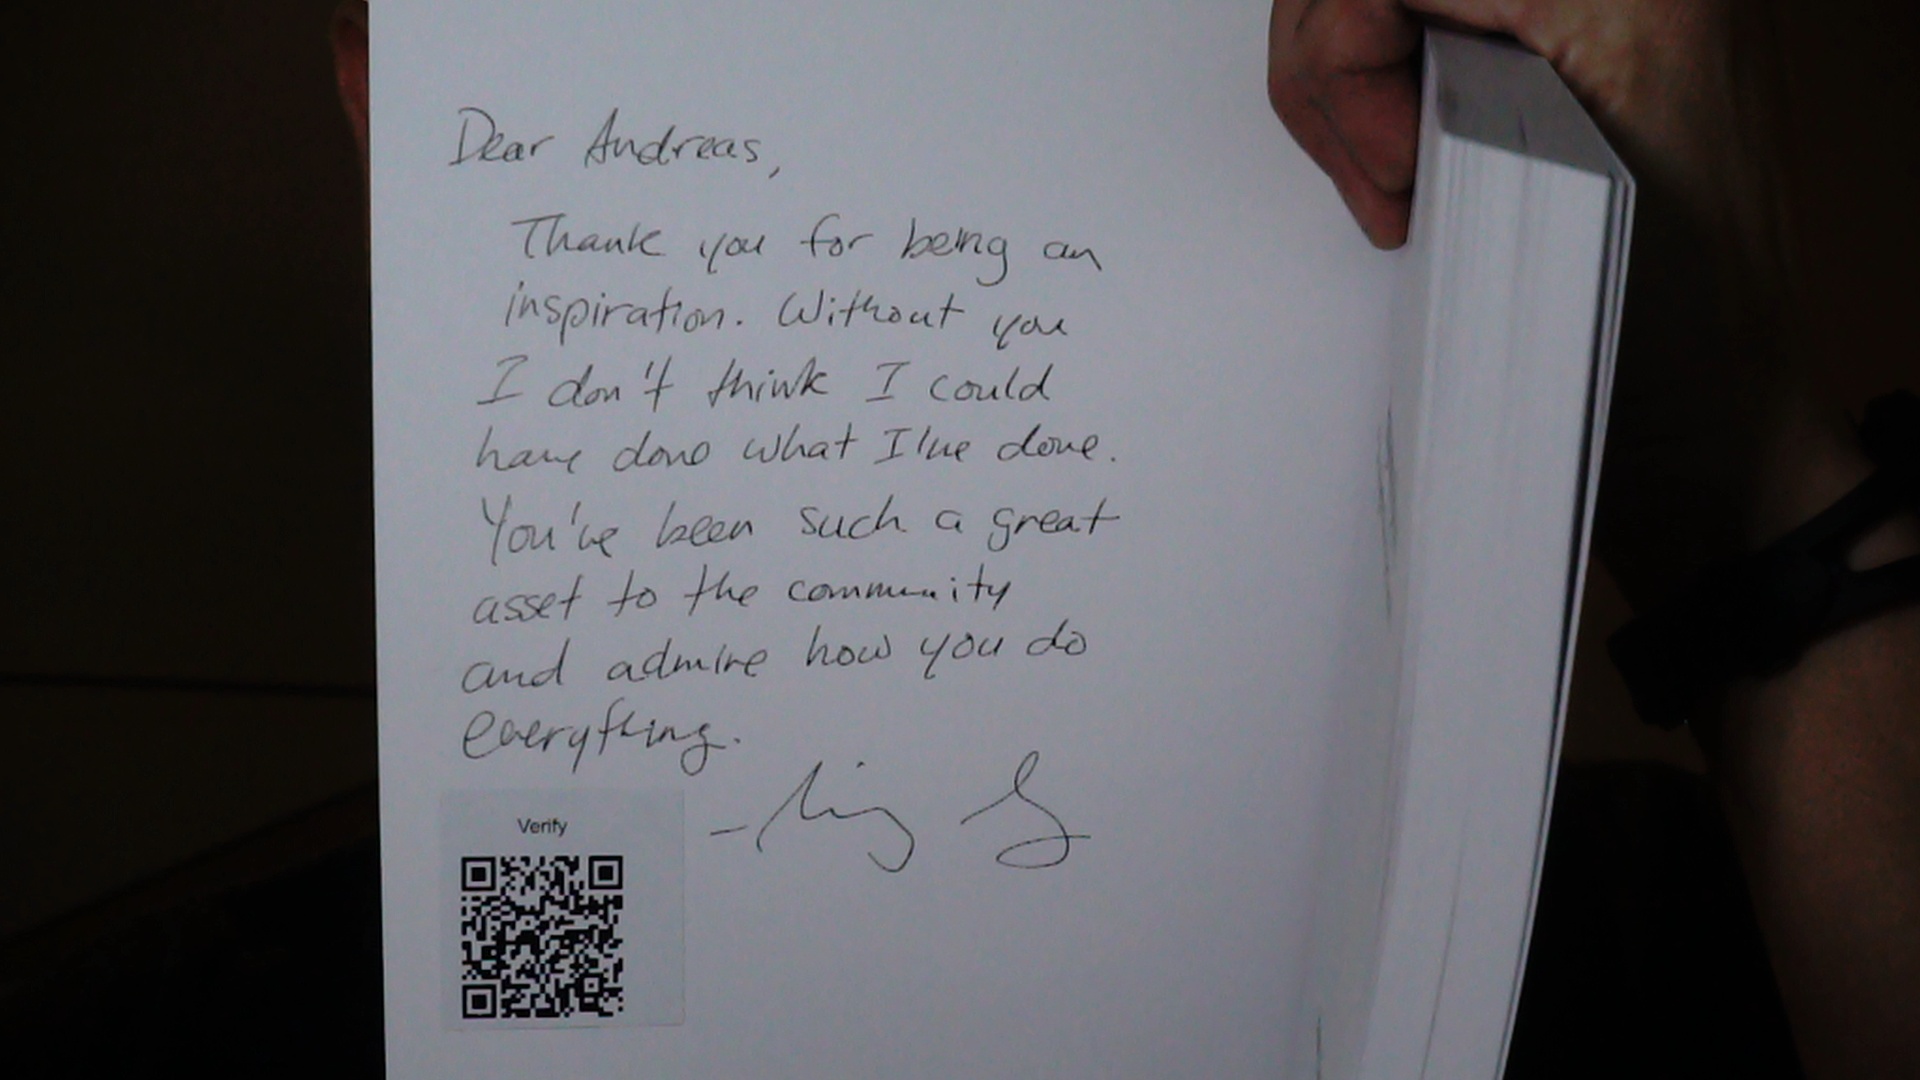 Dear Andreas,
Thank you for being an
inspiration. Without you
I don't think I could
have done what I've done.
You've been such a great
asset to the community
and admire how you do
everything.
Verify